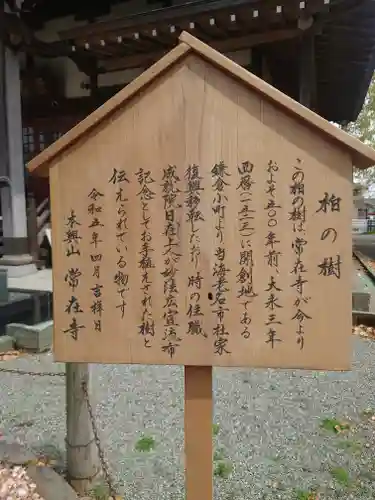 柏の樹
この柏の樹は、常在寺が今より
およそ五〇〇年前、大永三年
西暦(一五二三)に開創地である
鎌倉小町より当海老名市社家
復興移転したおり、時の住職
成就院日在上人が妙法広宣流布
記念としてお手植えされた樹と
伝えられている物です
令和五年四月吉祥日
本興山 常在寺